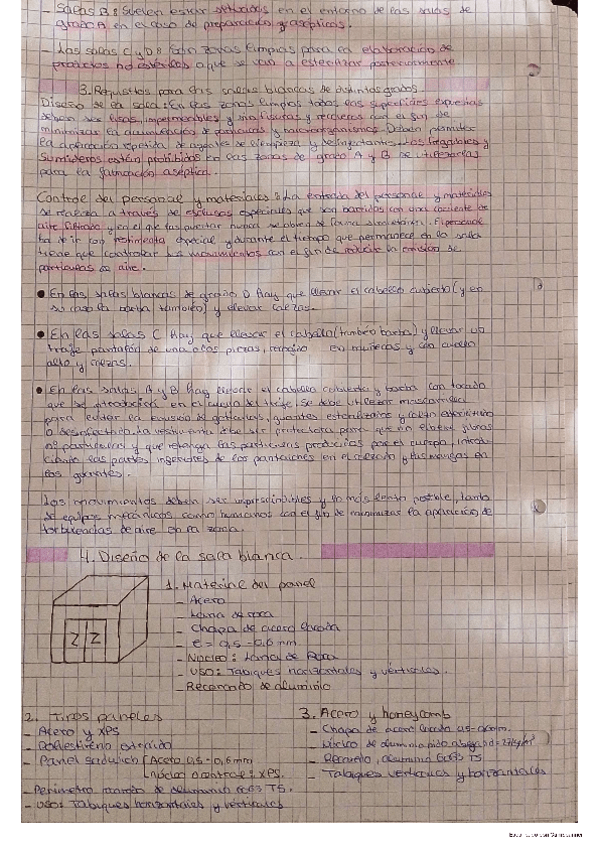 - Salas B: Suelen estar situadas en el entorno de las salas de
grado A en el caso de preparación y asépticos.
- Las salas C y D: Son zonas limpias para en la elaboración de
productos no estériles o que se van a esterilizar posteriormente
3. Requisitos para las salas blancas de distintos grados.
Diseño de la sala: En las zonas limpias todas las superficies expuestas
deben ser lisas, impermeables y sin fisuras y recuerda con el fin de
minimizar la acumulación de partículas y microorganismos. Deben permitir
la aplicación repetida de agentes de limpieza y desinfectante. Los fregaderos y
sumideros están prohibidos en las zonas de grado A y B
para la fabricación aséptica.
Control del personal y materiales: La entrada del personal y materiales
se realiza a través de esclusas especiales que son barridas con una corriente de
aire filtrado y en el que las puertas nunca se abren de forma simultánea. El personal
ha de ir con vestimenta especial y durante el tiempo que permanece en la sala
tiene que controlar sus movimientos con el fin de reducir la emisión de
partículas de aire.
• En las salas blancas de grado D hay que llevar el cabello cubierto (y en
su caso la barba también) y llevar calzas.
• En las salas C hay que llevar el cabello (también barba) y llevar un
traje pantalón de una o dos piezas, en muñecas y con cuello
alto y calzas.
• En las salas A y B hay el cabello cubierto y barba con tocado
que se introducirá en el cuello del traje, se debe utilizar mascarilla
para evitar la emisión de gotículas, guantes esterilizados y
o desinfectado. La vestimenta debe ser protectora para que no libere fibras
ni partículas y que retenga las partículas producidas por el cuerpo, introdu-
ciendo las partes inferiores de los pantalones en el calzado y las mangas en
los guantes.
Los movimientos deben ser imprescindibles y lo más lento posible, tanto
de equipos mecánicos como humanos con el fin de minimizar la aparición de
turbulencias de aire en la zona.
4. Diseño de la sala blanca.
1. Material del panel
- Acero
- Lana de roca
- Chapa de acero lacada
- e = 0,5 - 0,6 mm
- Núcleo: Lana de Roca
- USO: Tabiques horizontales y verticales.
- Recercado de aluminio
2. Tipos paneles
- Acero y XPS
- Poliestireno extruido
- Panel sandwich { Acero 0,5 - 0,6 mm
Núcleo central: XPS.
- Perímetro marco de aluminio 6063 T5.
- USO: Tabiques horizontales y verticales
3. Acero y honeycomb
- Chapa de acero lacada 0,5 - 0,6 mm.
- Núcleo de aluminio
- aluminio 6063 T5
- Tabiques verticales y horizontales